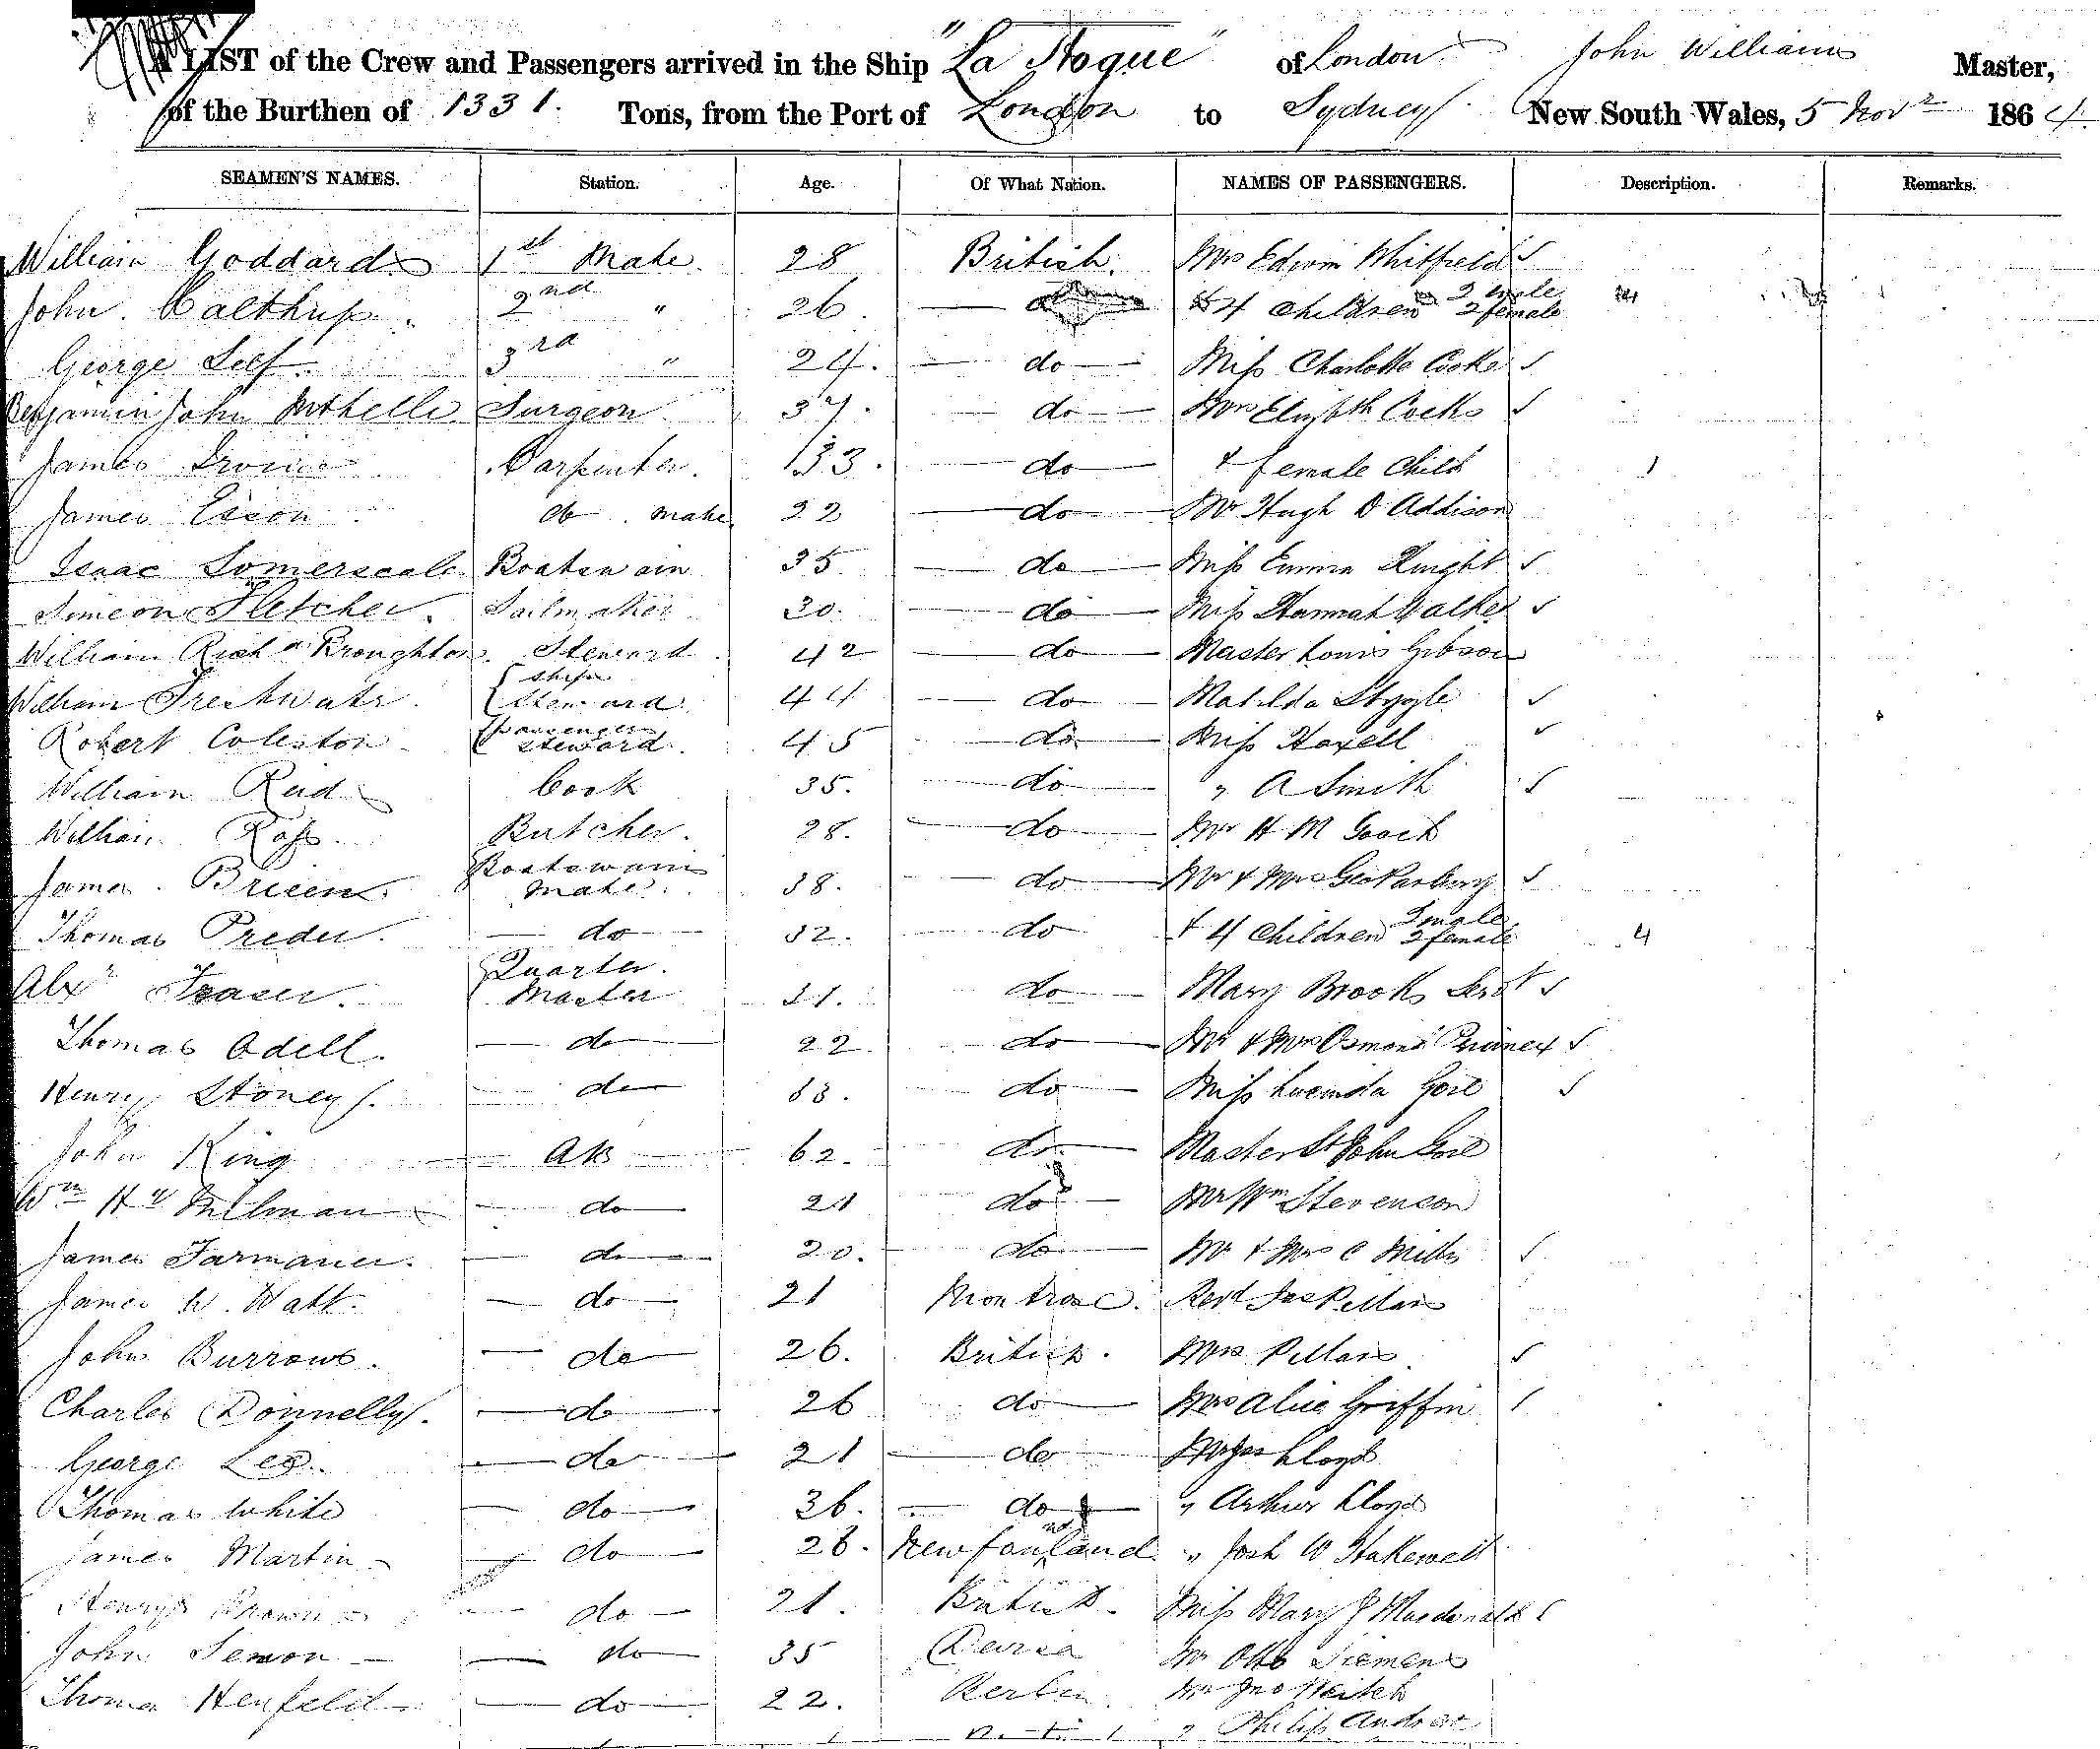 A LIST of the Crew and Passengers arrived in the Ship "La Hogue" of London John Williams Master,
of the Burthen of 1331. Tons, from the Port of London to Sydney New South Wales, 5 Novr 1864.
SEAMEN'S NAMES. Station. Age. Of What Nation. NAMES OF PASSENGERS. Description. Remarks.
William Goddard 1st Mate. 28 British. Mrs Edwin Whitfield ✓
John Calthrup 2nd " 26 & 4 Children 2 male 2 female 4
George Self 3rd " 24. do Miss Charlotte Cooke ✓
Benjamin John Surgeon. 37. do Mrs Elizabth Cocks ✓
James Irvine Carpenter. 33. do & female Child 1
James Esson do. mate 22 do Mr Hugh D Addison
Isaac Somerscale Boatswain 35 do Miss Emma Knight ✓
Simeon Fletcher. Sailmaker 30. do Miss Hannah Walker ✓
William Richd Broughton. Steward 42 do Master Louis Gibson
William Freshwater Ships Steward 44 do Matilda ✓
Robert Coleston Passengers Steward. 45 do Miss Haxell ✓
William Reid Cook 35. do " A Smith ✓
William Ross. Butcher. 28. do Mr H M Gooch
James Brien Boatswains mate. 38. do Mr & Mrs Geo Parbury ✓
Thomas Preder. do 32. do & 4 Children 2 male 2 female 4
Alexr Fraser. Quarter Master 31. do Mary Brooks Servt ✓
Thomas Odell. do 22. do Mr & Mrs Osmond ✓
Henry Stoney. do 33. do Miss Lucinda Gore ✓
John King AB 62. do Master St John Gore
Wm Hy Milman do 21 do Mr Wm Stevenson
James Farmaner. do 20. do Mr & Mrs C Mills ✓
James W. Watt. do 21 Montrose. Revd Jas Pillars
John Burrows. do 26. British. Mrs Pillars ✓
Charles Donnelly. do 26 do Mrs Alice Griffin ✓
George Leg. do 21 do Mr Jas Lloyd
Thomas White do 36. do " Arthur Lloyd
James Martin do 28. Newfoundland " Josh W Hakewell
Henry Brown do 21. British. Miss Mary J Macdonald ✓
John Semon do 35 Mr Otto Siemens
Thomas Henfeld do 22. Berlin Mr Jno Veitch
" Philip